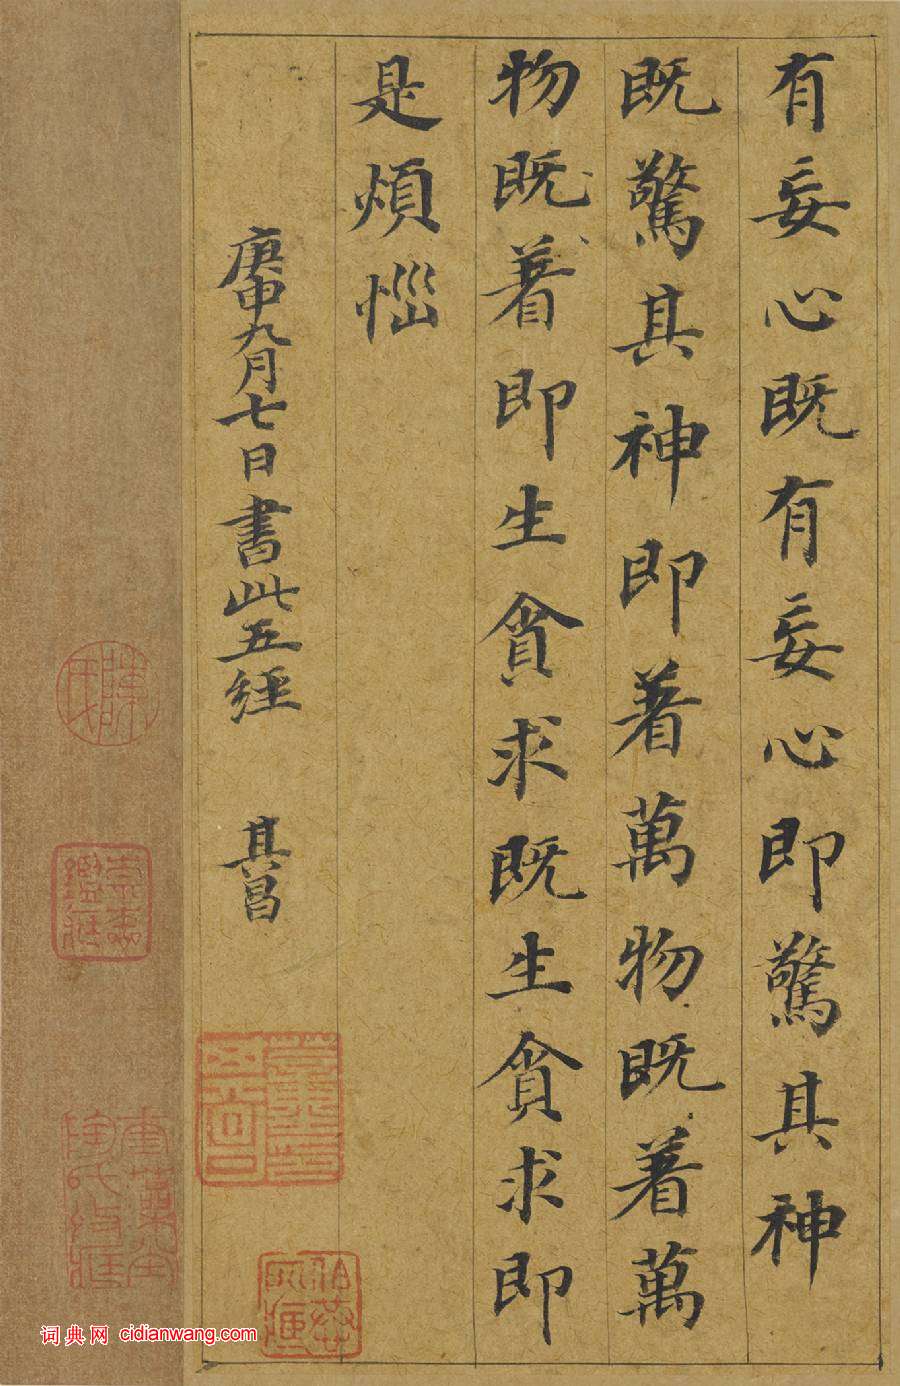 有妄心既有妄心即驚其神
既驚其神即著萬物既著萬
物既著即生貪求既生貪求即
是煩惱
庚申九月七日書此五經 其昌
词典网 cidianwang.com